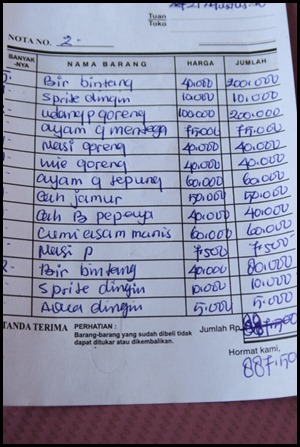 Tuan
Toko
NOTA NO. 2-
BANYAK -NYA NAMA BARANG HARGA JUMLAH
Bir bintang 40.000 200.000
Sprite dingin 10.000 10.000
udang p goreng 100.000 200.000
ayam g mentega 75000 75.000
Nasi goreng 40.000 40.000
mie goreng 40.000 40.000
ayam g tepung 60.000 60.000
Cah jamur 50.000 50.000
Cah B pepaya 40.000 40.000
Cumi asam manis 60.000 60.000
Nasi p 7.500 7.500
2- Bir bintang 40.000 80.000
Sprite dingin 10.000 10.000
Aqua dingin 5.000 5.000
TANDA TERIMA PERHATIAN : Jumlah Rp.
Barang-barang yang sudah dibeli tidak
dapat ditukar atau dikembalikan.
Hormat kami,
887.50